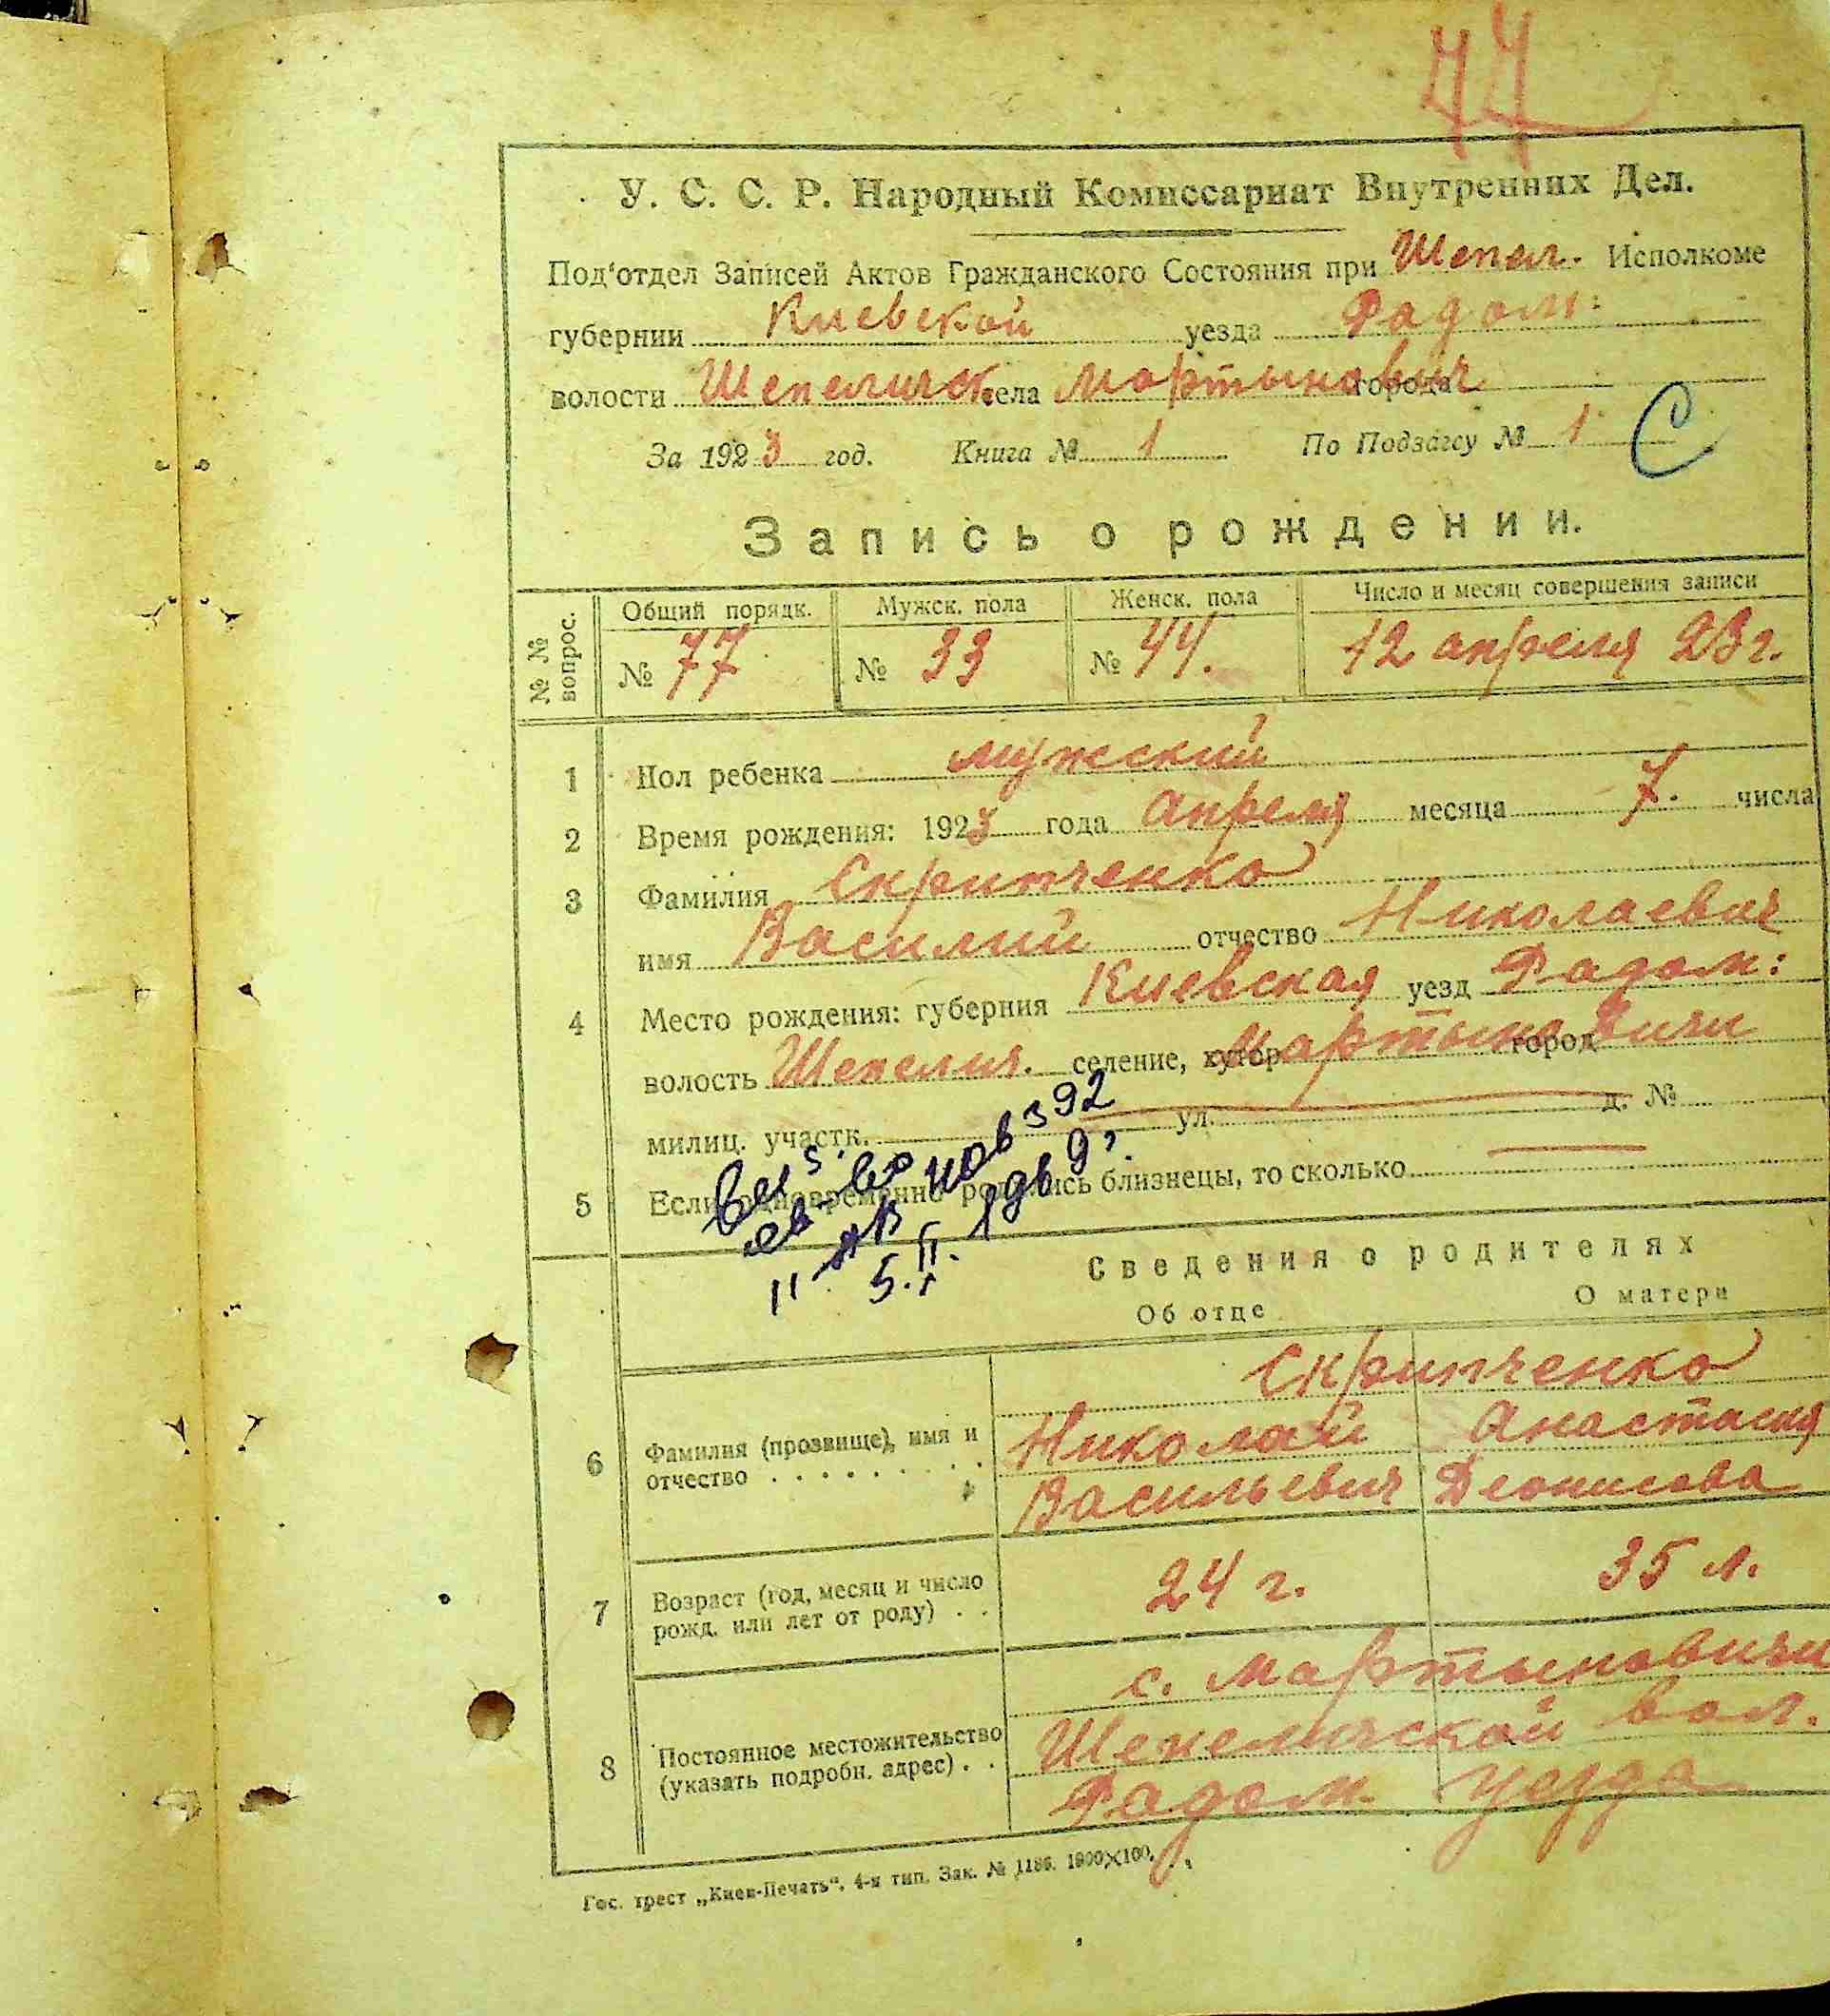 77
У. С. С. Р. Народный Комиссариат Внутренних Дел.
Под'отдел Записей Актов Гражданского Состояния при Шепел. Исполкоме
губернии Киевской уезда Радом:
волости Шепелическ. села Мартынович города
За 1923 год. Книга № 1 По Подзагсу № 1 С
Запись о рождении.
№ № вопрос. Общий порядк. Мужск. пола Женск. пола Число и месяц совершения записи
№ 77 № 33 № 44. 12 апреля 23 г.
1 Пол ребенка мужский
2 Время рождения: 1923 года Апреля месяца 7. числа
3 Фамилия Скрипченко
имя Василий отчество Николаевич
4 Место рождения: губерния Киевская уезд Радом:
волость Шепелич. селение, хутор Мартыновичи город
милиц. участк. ул. д. №
5 Если одновременно родились близнецы, то сколько
Сведения о родителях
Об отце О матери
Скрипченко
6 Фамилия (прозвище), имя и Николай Анастасия
отчество Васильевич Деонисова
7 Возраст (год, месяц и число 24 г. 35 л.
рожд. или лет от роду)
с. Мартыновичи
8 Постоянное местожительство Шепеличской вол.
(указать подробн. адрес) Радом. уезда
Гос. трест „Киев-Печать“. 4-я тип. Зак. № 1186. 1900×100.